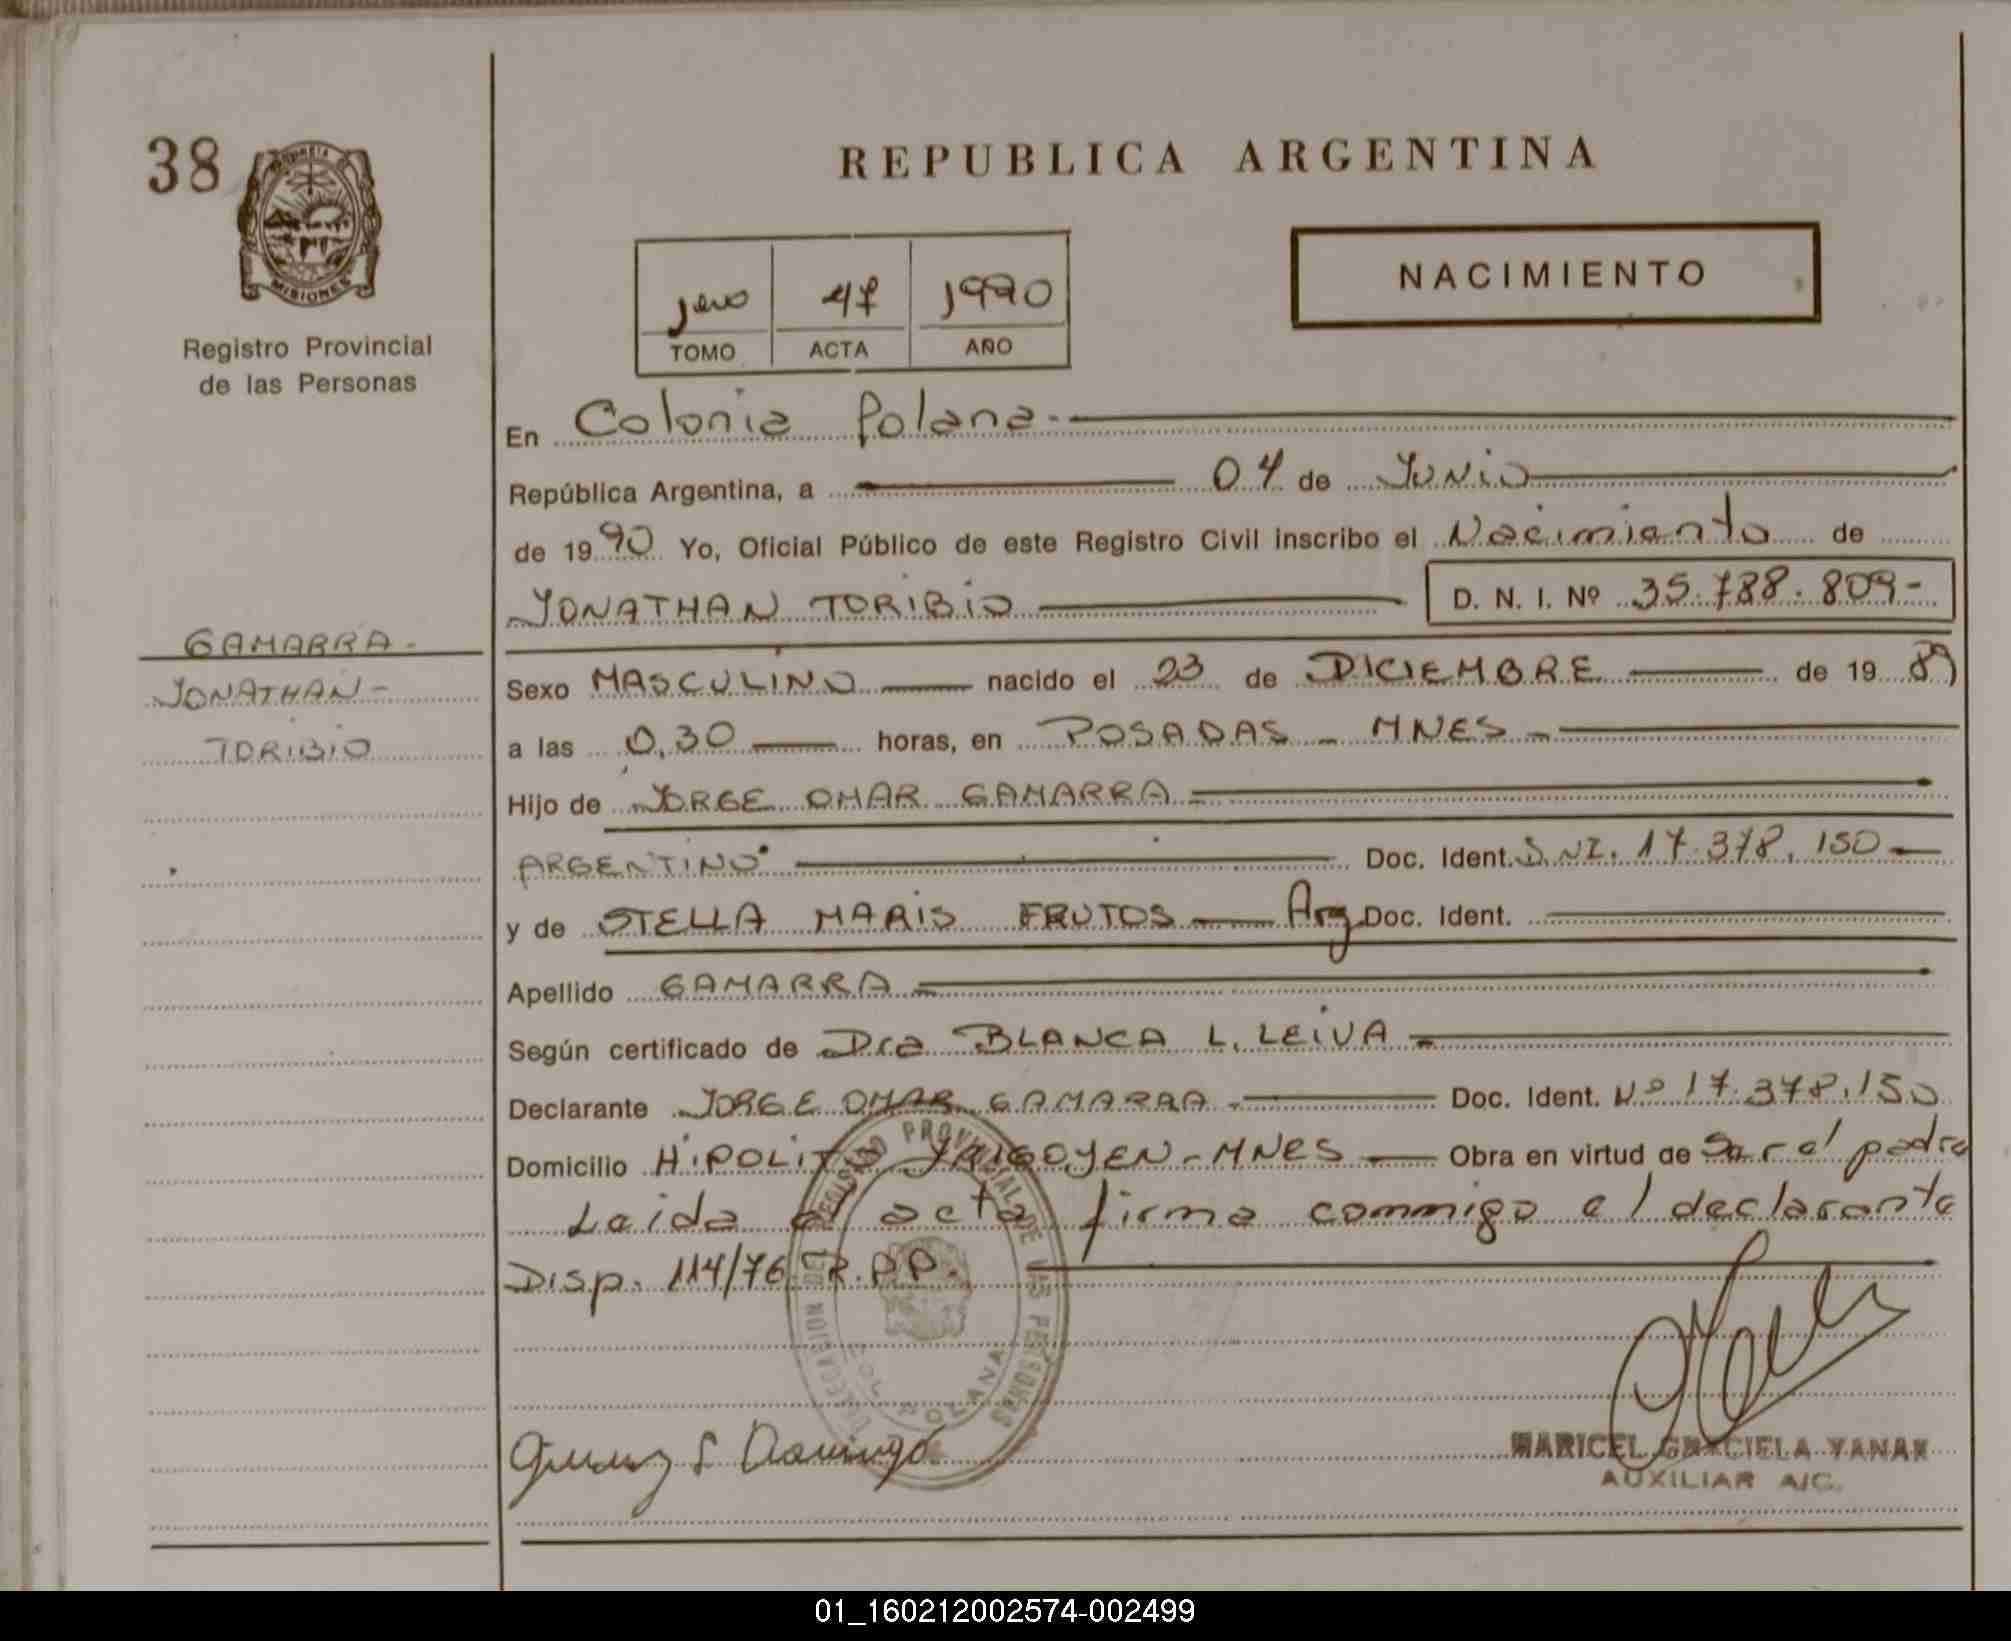 38
PROVINCIA
MISIONES
Registro Provincial
de las Personas
REPUBLICA ARGENTINA
NACIMIENTO
47 1990
TOMO ACTA AÑO
En Colonia Polana.
República Argentina, a 04 de Junio
de 1990 Yo, Oficial Público de este Registro Civil inscribo el Nacimiento de
JONATHAN TORIBIO D. N. I. Nº 35.788.809-
GAMARRA-
JONATHAN-
TORIBIO
Sexo MASCULINO nacido el 23 de DICIEMBRE de 1989
a las 0,30 horas, en POSADAS - MNES -
Hijo de JORGE OMAR GAMARRA
ARGENTINO Doc. Ident. D.NI. 17.378.150
y de STELLA MARIS FRUTOS Arg Doc. Ident.
Apellido GAMARRA
Según certificado de Dra BLANCA L. LEIVA
Declarante JORGE OMAR GAMARRA - Doc. Ident. Nº 17.378.150
Domicilio HIPOLITO YRIGOYEN-MNES Obra en virtud de Ser el padre
Leida el acta firma commigo el declarante
Disp. 114/76 R.P.P.
DELEGACION DEL REGISTRO PROVINCIAL DE LAS PERSONAS
COL. POLANA
Domingo
MARICEL GRACIELA YANAK
AUXILIAR A/C.
01_160212002574-002499